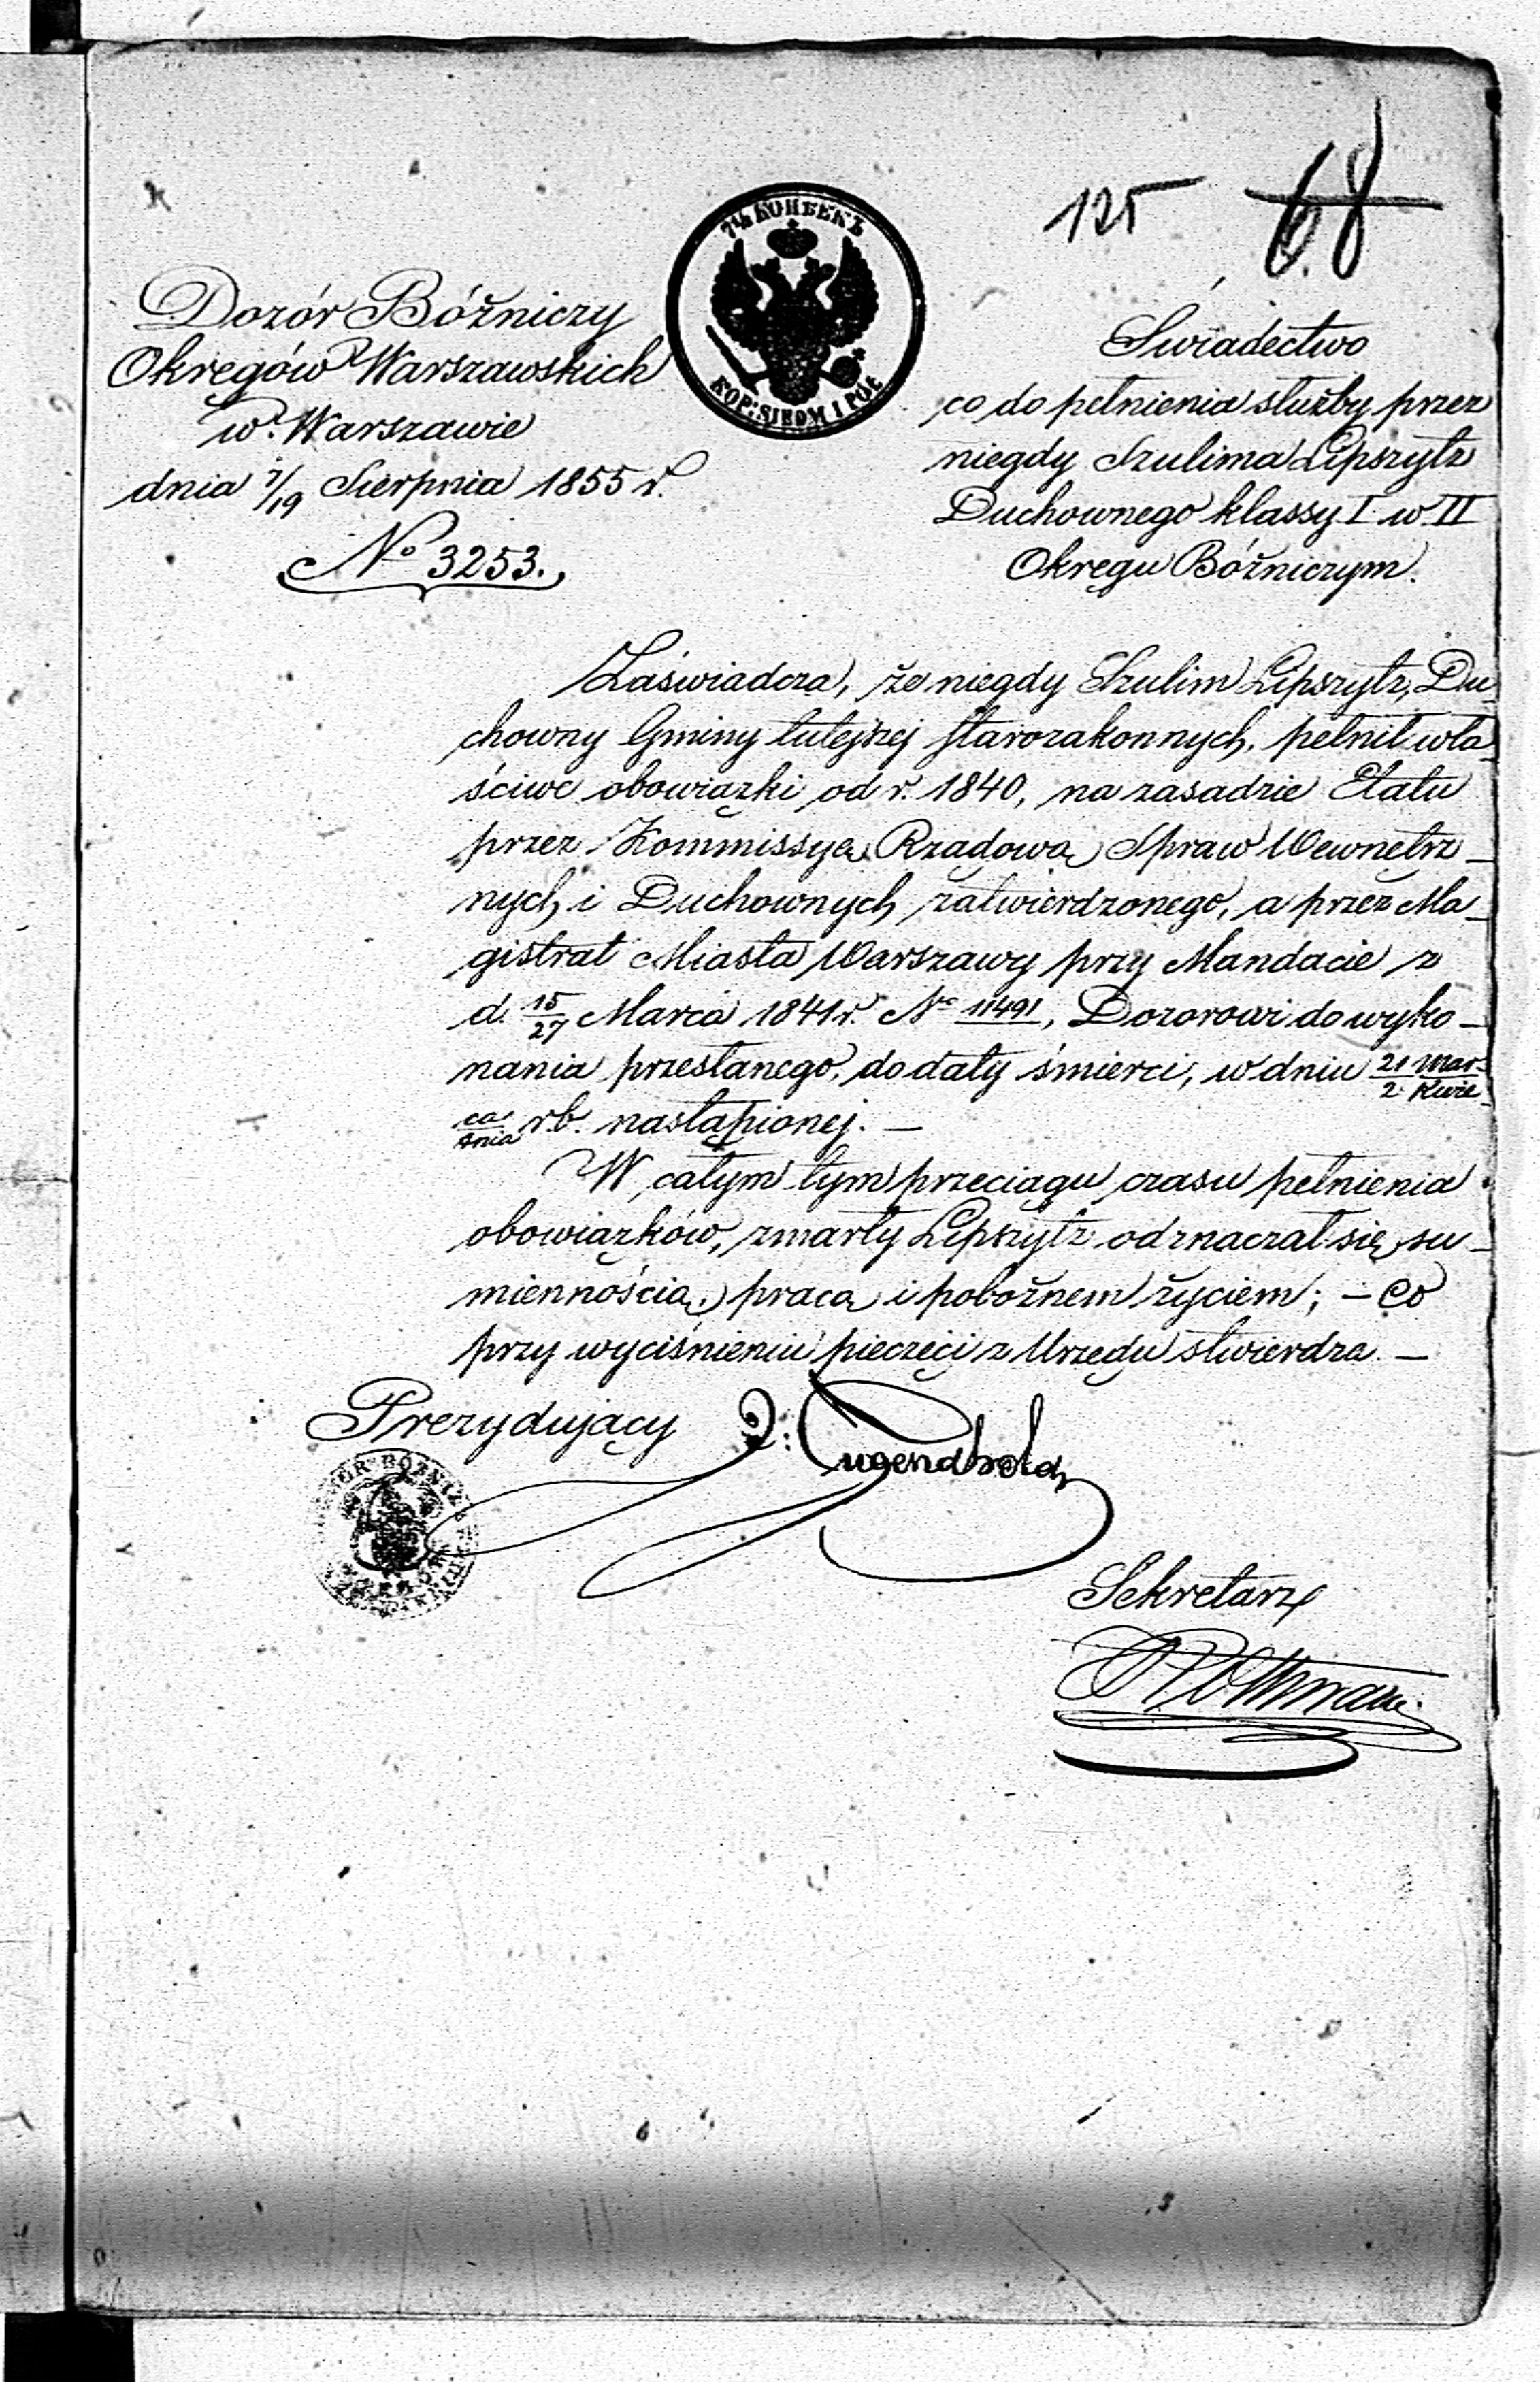 125 68
7½ КОПѢЕКЪ
KOP: SIEDM I PÓŁ
Dozór Bóźniczy
Okręgów Warszawskich
w Warszawie
dnia 7/19 Sierpnia 1855 r.
No 3253.
Świadectwo
co do pełnienia służby przez
niegdy Szulima Lipszytz
Duchownego klassy I w II
Okręgu Bóżniczym.
Zaświadcza, że niegdy Szulim Lipszytz, Du
chowny Gminy tutejszej starozakonnych, pełnił wła
ściwe obowiązki od r. 1840, na zasadzie Etatu
przez Kommissyą Rządową Spraw Wewnętrz-
nych i Duchownych zatwierdzonego, a przez Ma-
gistrat Miasta Warszawy przy Mandacie z
d. 15/27 Marca 1841 r. No 11491, Dozorowi do wyko-
nania przesłanego, do daty śmierci, w dniu 21 Mar-/2 Kwie-
ca/tnia r.b. nastąpionej. —
W całym tym przeciągu czasu pełnienia
obowiązków, zmarły Lipszytz odznaczał się su-
miennością, pracą i pobożnem życiem; – co
przy wyciśnieniu pieczęci z Urzędu stwierdza. —
Prezydujący J: Tugendhold
Sekretarz